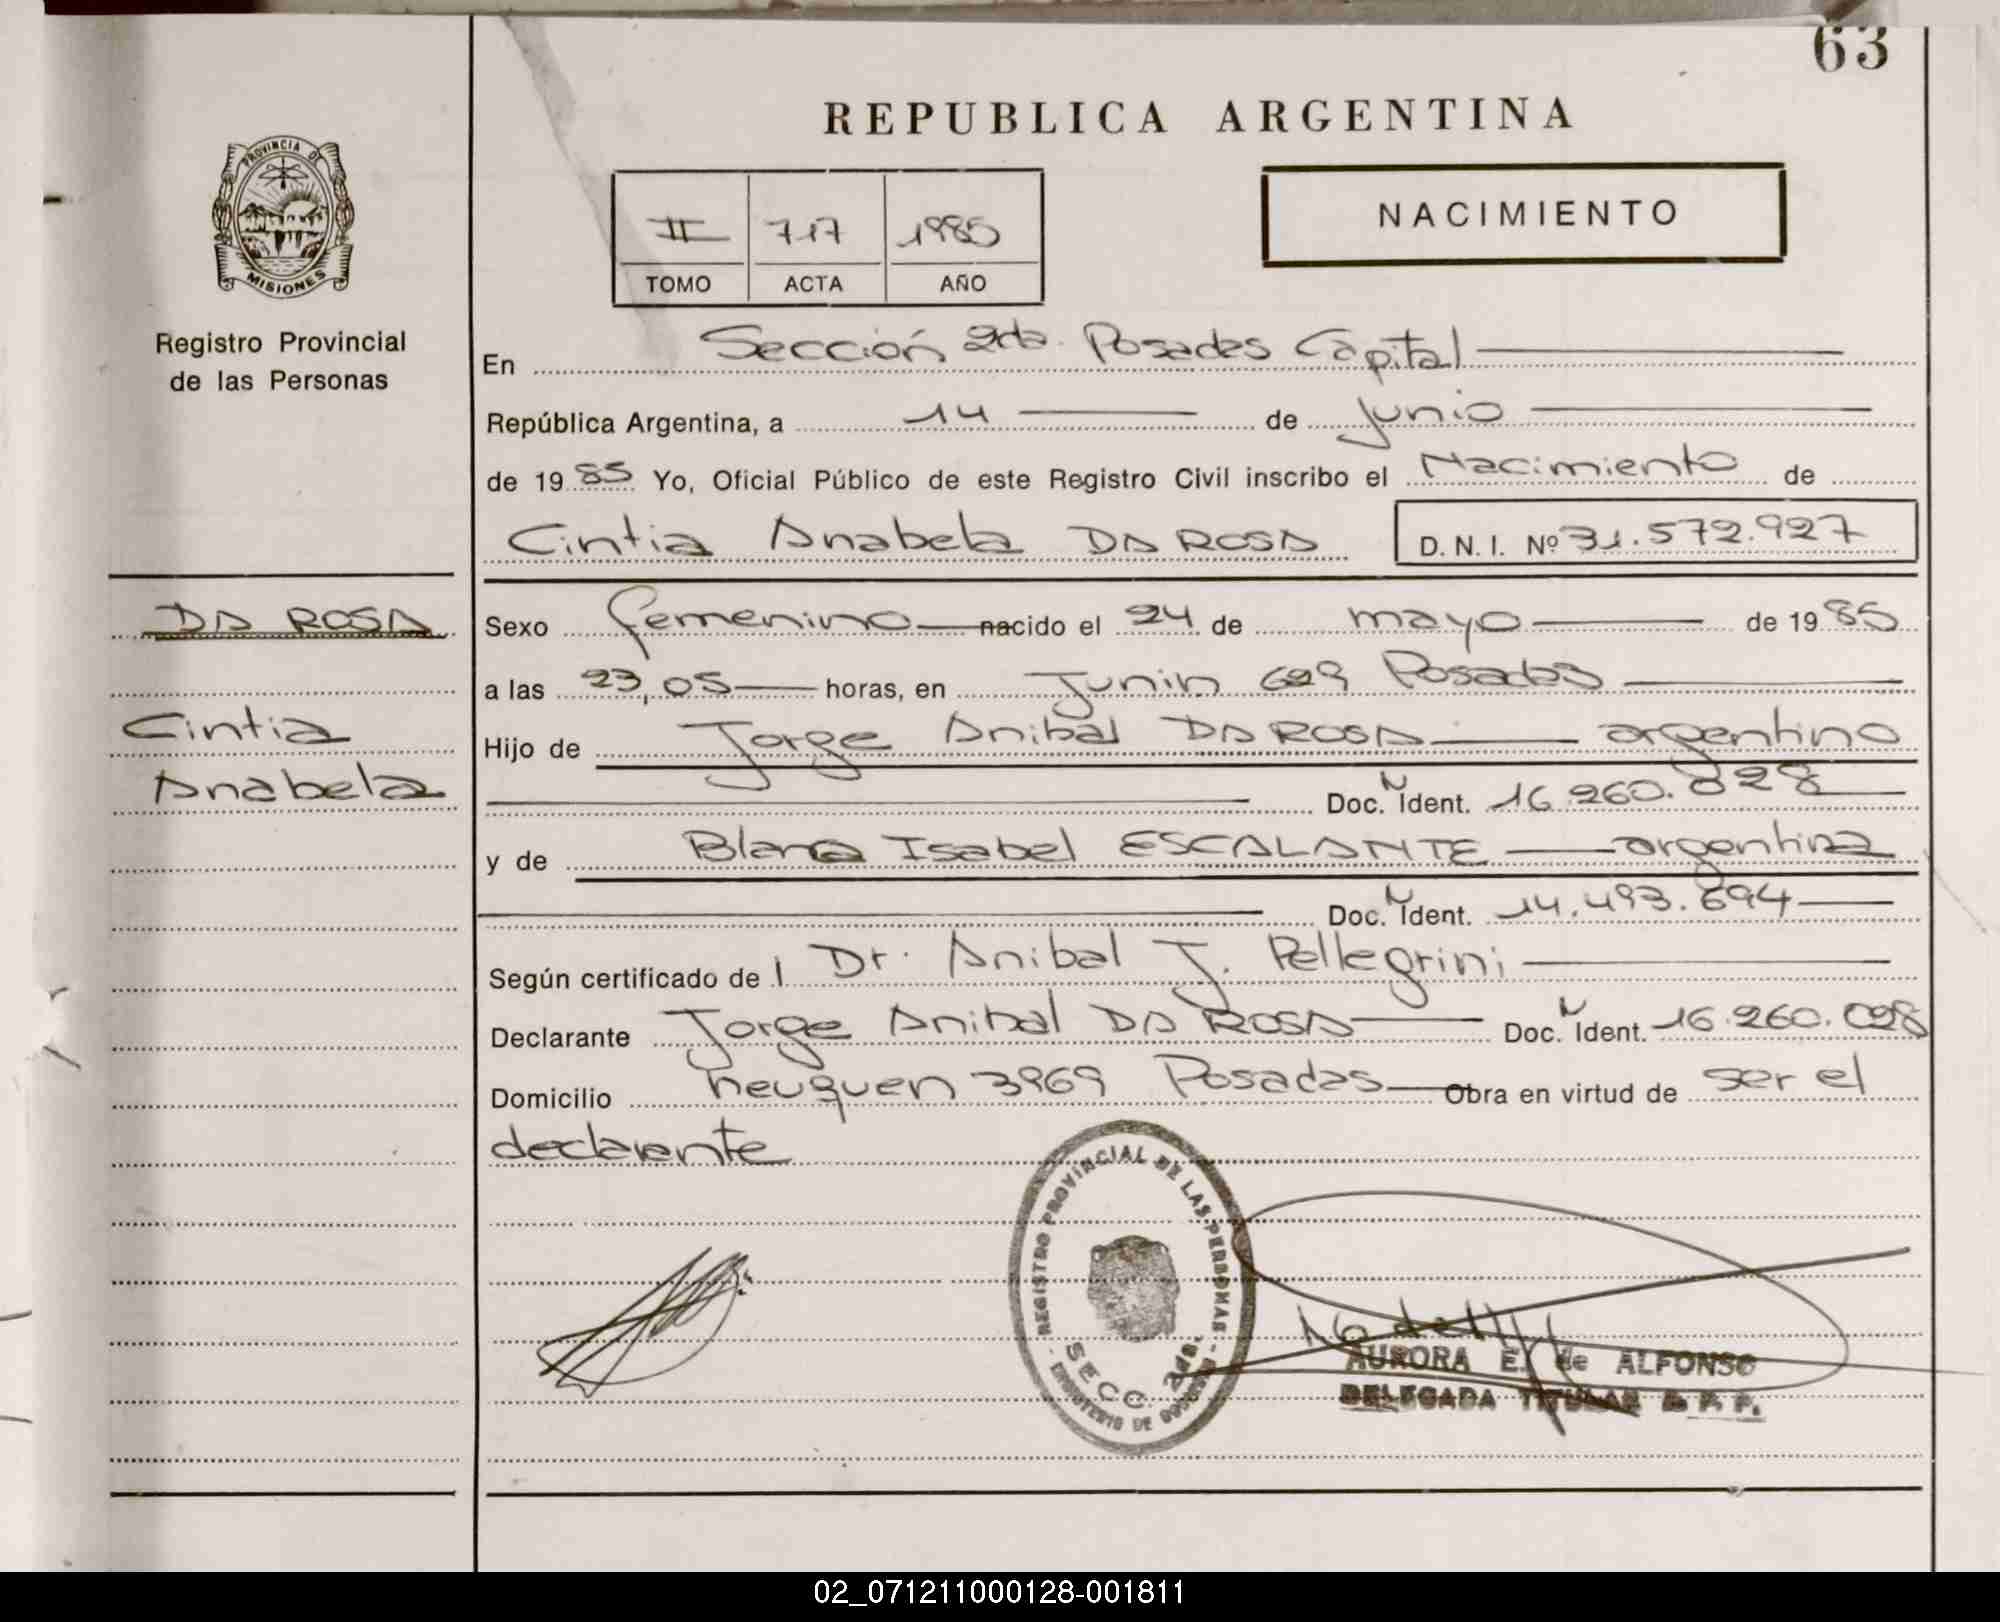 63
REPUBLICA ARGENTINA
PROVINCIA DE
MISIONES
Registro Provincial
de las Personas
II 717 1985
TOMO ACTA AÑO
NACIMIENTO
En Sección 2da. Posadas Capital
República Argentina, a 14 de Junio
de 1985 Yo, Oficial Público de este Registro Civil inscribo el Nacimiento de
Cintia Anabela DA ROSA D. N. I. Nº 31.572.927
DA ROSA
Cintia
Anabela
Sexo femenino nacido el 24 de mayo de 1985
a las 23,05 horas, en Junin 629 Posadas
Hijo de Jorge Anibal DA ROSA argentino
Doc. N Ident. 16.260.828
y de Blanca Isabel ESCALANTE argentina
Doc. N Ident. 14.493.694
Según certificado de l Dr. Anibal J. Pellegrini
Declarante Jorge Anibal DA ROSA Doc. N Ident. 16.260.028
Domicilio neuquen 3969 Posadas Obra en virtud de ser el
declarante
REGISTRO PROVINCIAL DE LAS PERSONAS
SECC. 2da.
MINISTERIO DE GOBIERNO
AURORA E. de ALFONSO
DELEGADA TITULAR R. P. P.
02_071211000128-001811